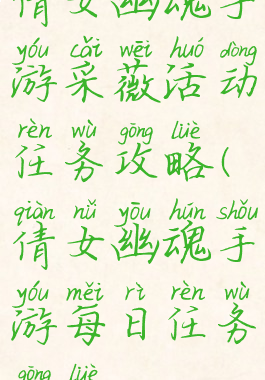 倩女幽魂手
yóu cǎi wēi huó dòng
游采薇活动
rèn wù gōng lüè
任务攻略(
qiàn nǚ yōu hún shǒu
倩女幽魂手
yóu měi rì rèn wù
游每日任务
gōng lüè